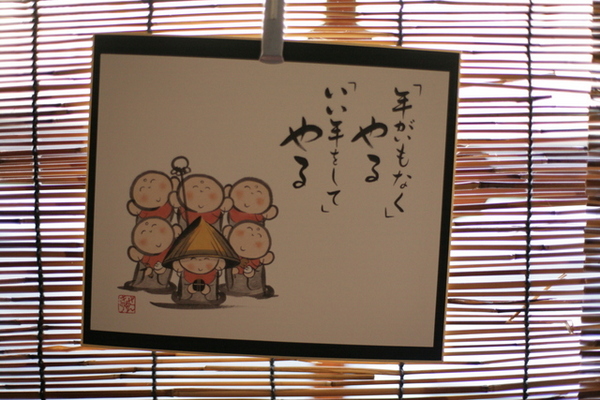 「年がいもなく
やる
「いい年をして」
やる